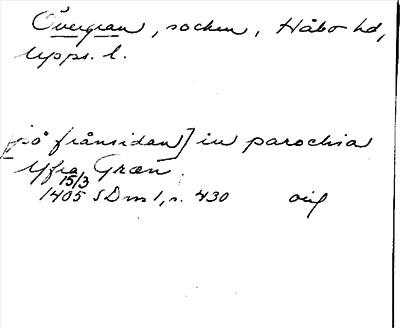 Övergran, socken, Håbo hd,
Upps. l.
[på frånsidan] in parochia
Yfra Græn
15/3
1405 SDns 1, s. 430 orig